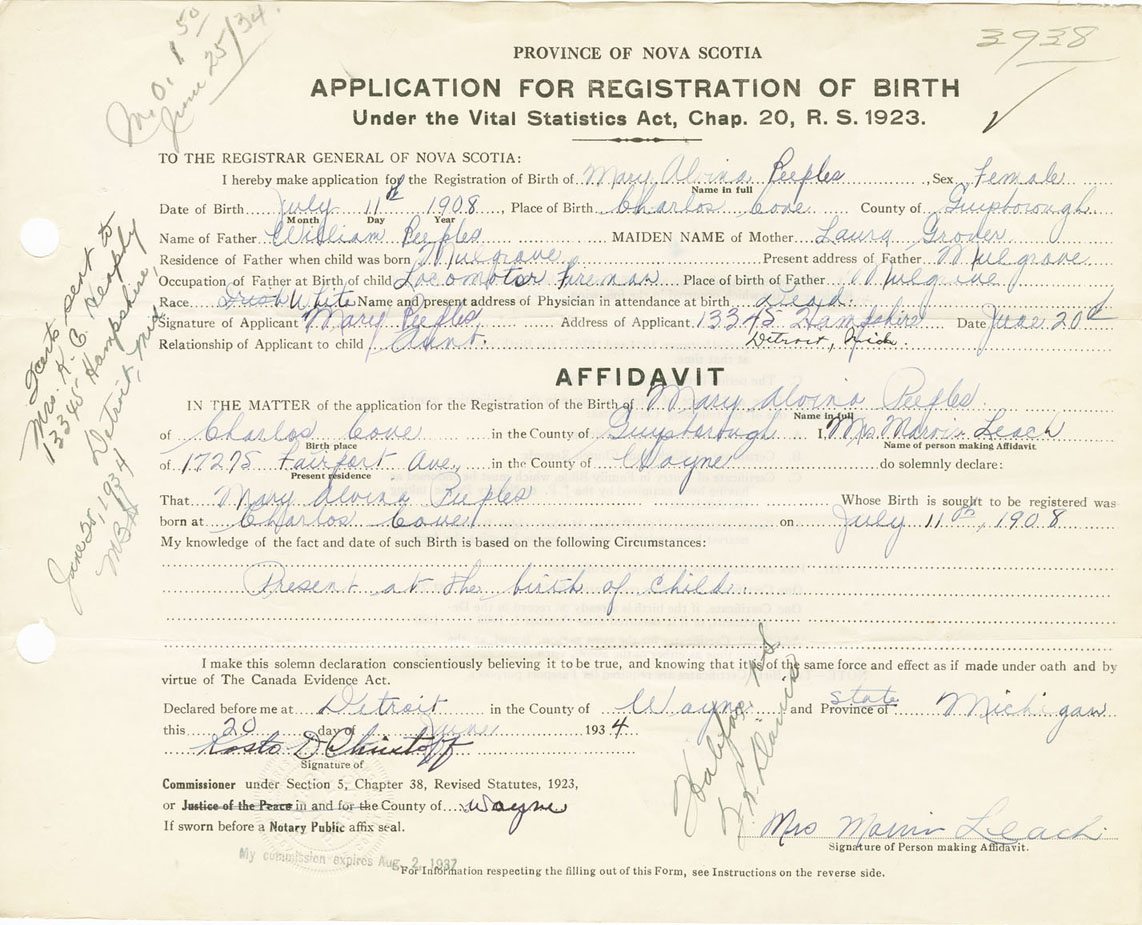 M.O. 1 50
June 25/34.
3938
PROVINCE OF NOVA SCOTIA
APPLICATION FOR REGISTRATION OF BIRTH
Under the Vital Statistics Act, Chap. 20, R. S. 1923.
TO THE REGISTRAR GENERAL OF NOVA SCOTIA:
I hereby make application for the Registration of Birth of Mary Alvina Peeples, Sex Female
Name in full
Date of Birth July 11th 1908, Place of Birth Charlos Cove County of Guysborough
Month Day Year
Name of Father William Peeples MAIDEN NAME of Mother Laura Grover
Residence of Father when child was born Mulgrave Present address of Father Mulgrave
Occupation of Father at Birth of child Locomotor Fireman Place of birth of Father Mulgrave
Race Irish White Name and present address of Physician in attendance at birth dead.
Signature of Applicant Mary Peeples Address of Applicant 13345 Hampshire Date June 20th
Relationship of Applicant to child Aunt. Detroit, Mich.
AFFIDAVIT
IN THE MATTER of the application for the Registration of the Birth of Mary Alvina Peeples
Name in full
of Charlos Cove in the County of Guysborough I, Mrs Marvin Leach
Birth place Name of person making Affidavit
of 17275 Fairport Ave., in the County of Wayne do solemnly declare:
Present residence
That Mary Alvina Peeples Whose Birth is sought to be registered was
born at Charlos Cove on July 11th, 1908
My knowledge of the fact and date of such Birth is based on the following Circumstances:
Present at the birth of child.
I make this solemn declaration conscientiously believing it to be true, and knowing that it is of the same force and effect as if made under oath and by
virtue of The Canada Evidence Act.
Declared before me at Detroit in the County of Wayne and Province of state Michigan
this 20 day of June 1934
Kosto D Christoff
Signature of
Commissioner under Section 5, Chapter 38, Revised Statutes, 1923,
or Justice of the Peace in and for the County of Wayne
If sworn before a Notary Public affix seal.
Mrs Marvin Leach
Signature of Person making Affidavit.
My commission expires Aug. 2, 1937
For Information respecting the filling out of this Form, see Instructions on the reverse side.
sent to
Mrs. K. B.
13345 Hampshire,
Detroit, Mich.
June 30, 1934
Halifax N S